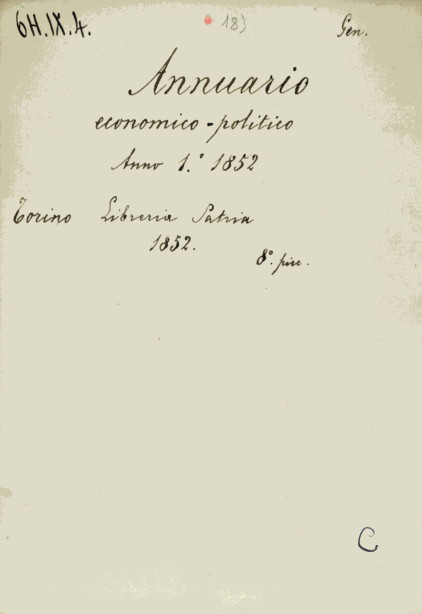 6H.IX.4. 18) Gen.
Annuario
economico-politico
Anno 1.° 1852
Torino Libreria Patria
1852.
8°. picc.
C